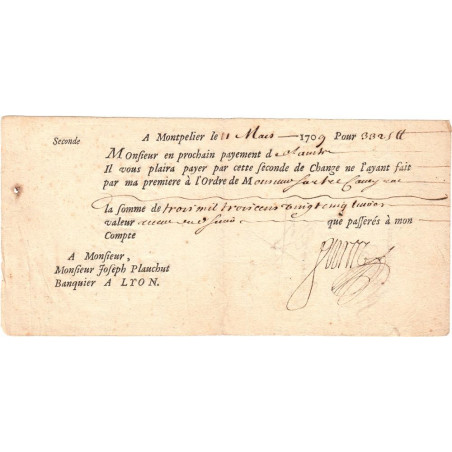 Seconde A Montpelier le 11 Mars 1709 Pour 3325 ₶
Monsieur en prochain payement d
Il vous plaira payer par cette seconde de Change ne l'ayant fait
par ma premiere à l'Ordre de Monsieur
la somme de trois mil trois cens vingt cinq livres
valeur que passerés à mon
Compte
A Monsieur,
Monsieur Joseph Plauchut
Banquier A LYON.